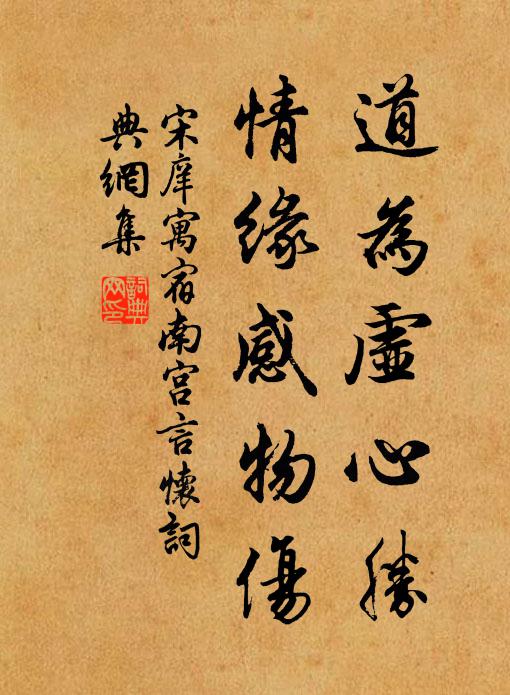 道為虛心勝
情緣感物傷
宋庠寓宿南宮言懷詞
典網集
詞典
网印